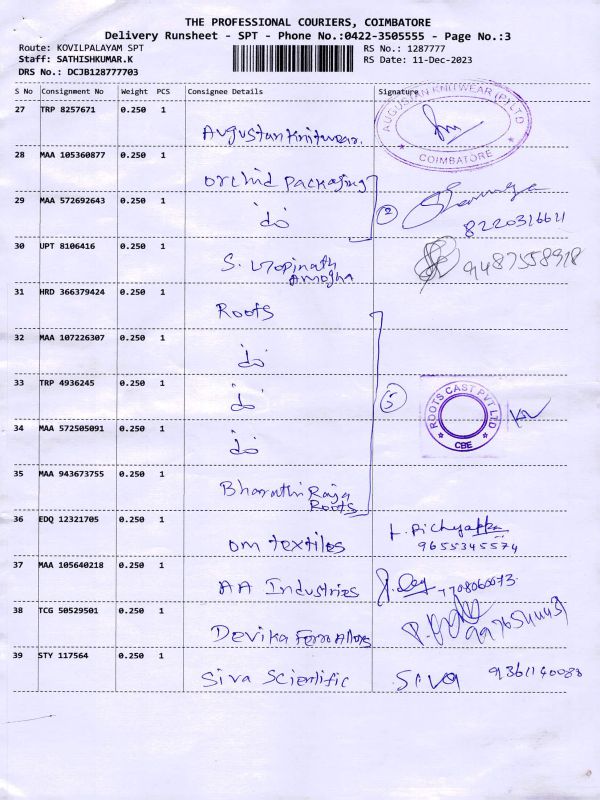 THE PROFESSIONAL COURIERS, COIMBATORE
Delivery Runsheet - SPT - Phone No.:0422-3505555 - Page No.:3
Route: KOVILPALAYAM SPT RS No.: 1287777
Staff: SATHISHKUMAR.K RS Date: 11-Dec-2023
DRS No.: DCJB128777703
S No Consignment No Weight PCS Consignee Details Signature
27 TRP 8257671 0.250 1
Augustan Knitwear.
AUGUSTAN KNITWEAR (P) LTD
COIMBATORE
28 MAA 105360877 0.250 1
Orchid Packaging
29 MAA 572692643 0.250 1
do
2
8220316621
30 UPT 8106416 0.250 1
S. Gopinath
Amogha
9487558918
31 HRD 366379424 0.250 1
Roots
32 MAA 107226307 0.250 1
do
33 TRP 4936245 0.250 1
do
5
ROOTS CAST PVT LTD
CBE
34 MAA 572505091 0.250 1
do
35 MAA 943673755 0.250 1
Bharathi Raja
Roots
36 EDQ 12321705 0.250 1
Om textiles
9655345574
37 MAA 105640218 0.250 1
AA Industries
7708060073
38 TCG 50529501 0.250 1
Devika Ferro Alloys
39 STY 117564 0.250 1
Siva Scientific
Siva
9361140088